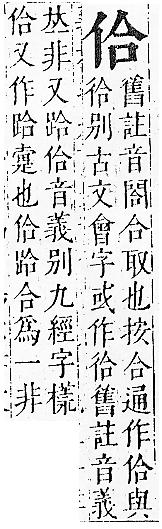 佮
舊註音閤合取也按合通作佮與
㣛別古文會字或作㣛舊註音義
𠀤非又跲佮音義別九經字㨾
佮又作跲疐也佮跲合爲一非